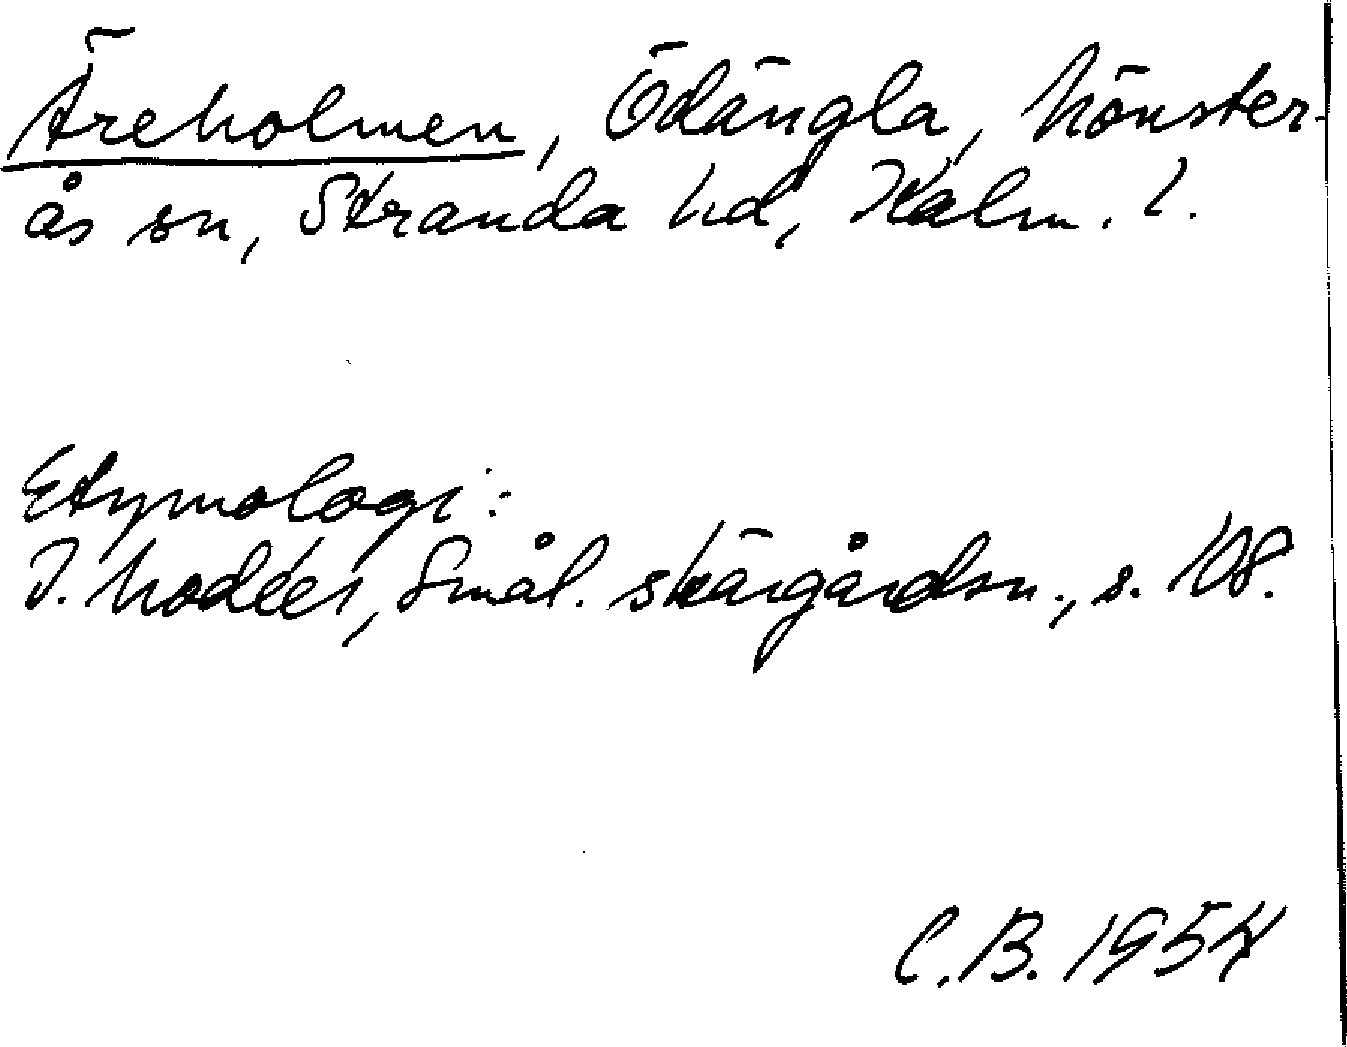 Äreholmen, Ödängla, Mönster-
ås sn, Stranda hd, Kalm. l.
Etymologi:
I. Modéer, Smål. skärgårdsn., s. 108.
C.B. 1954